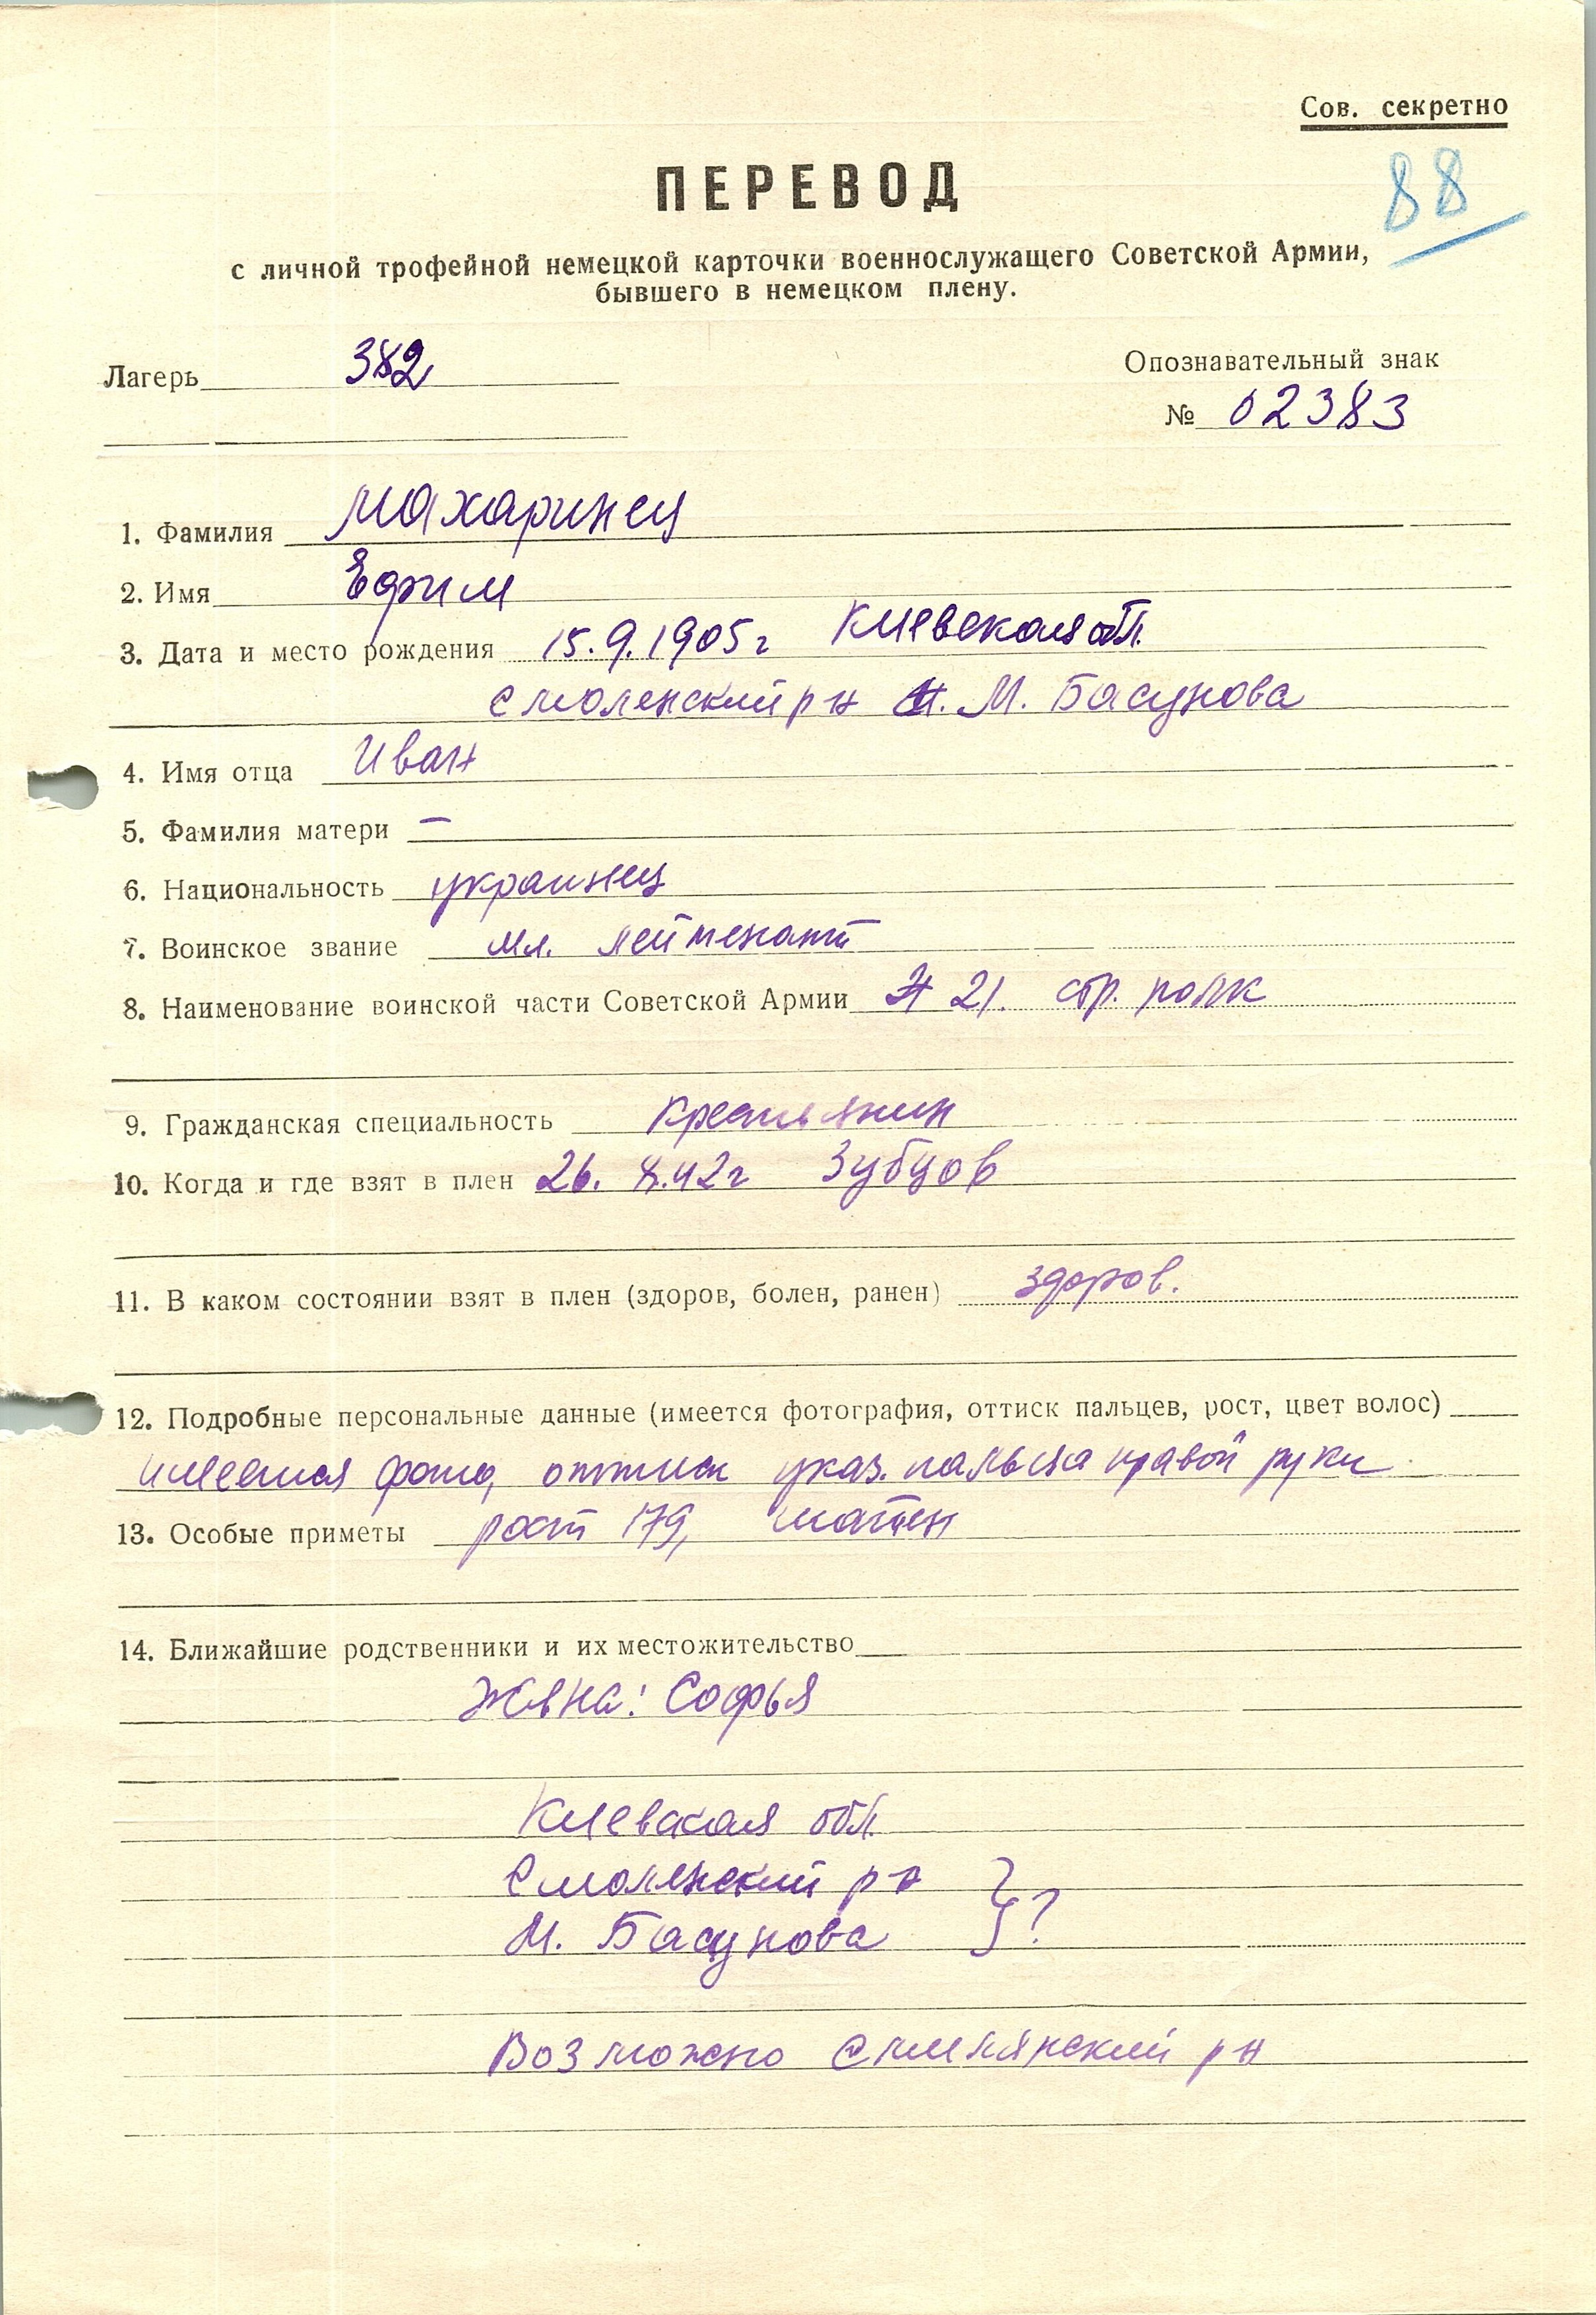 Сов. секретно
88
ПЕРЕВОД
с личной трофейной немецкой карточки военнослужащего Советской Армии,
бывшего в немецком плену.
Лагерь 382
Опознавательный знак
№ 02383
1. Фамилия Махаринец
2. Имя Ефим
3. Дата и место рождения 15.9.1905 г Киевская обл.
Смоленский р н М. Басунова
4. Имя отца Иван
5. Фамилия матери —
6. Национальность украинец
7. Воинское звание мл. лейтенант
8. Наименование воинской части Советской Армии 21. стр. полк
9. Гражданская специальность крестьянин
10. Когда и где взят в плен 26. 8.42 г Зубцов
11. В каком состоянии взят в плен (здоров, болен, ранен) здоров.
12. Подробные персональные данные (имеется фотография, оттиск пальцев, рост, цвет волос)
имеется фото, оттиск указ. пальца правой руки
13. Особые приметы рост 179, шатен
14. Ближайшие родственники и их местожительство
Жена: Софья
Киевская обл.
Смоленский р н
М. Басунова } ?
Возможно Смелянский р н